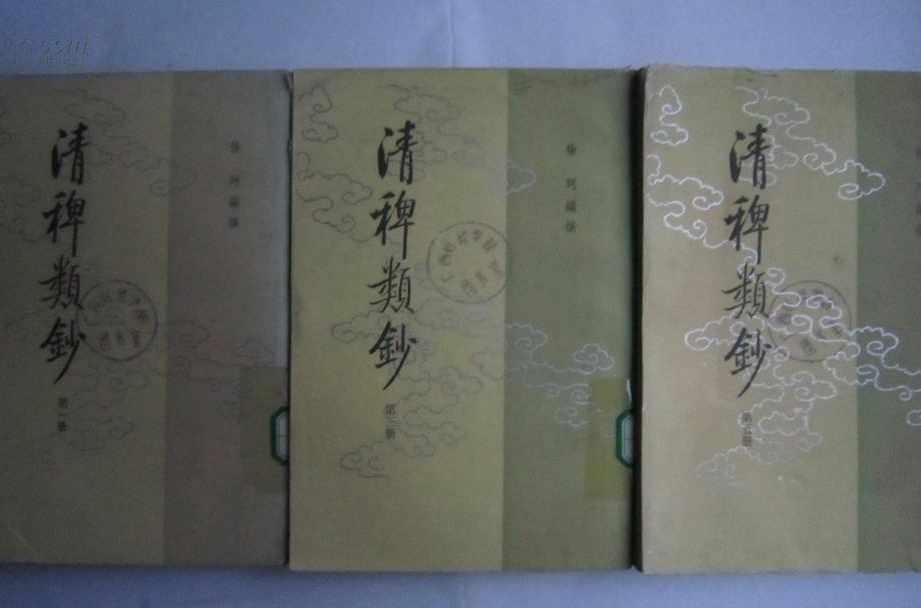 清稗類鈔
第一册
徐珂編撰
清稗類鈔
第三册
徐珂編撰
清稗類鈔
第五册